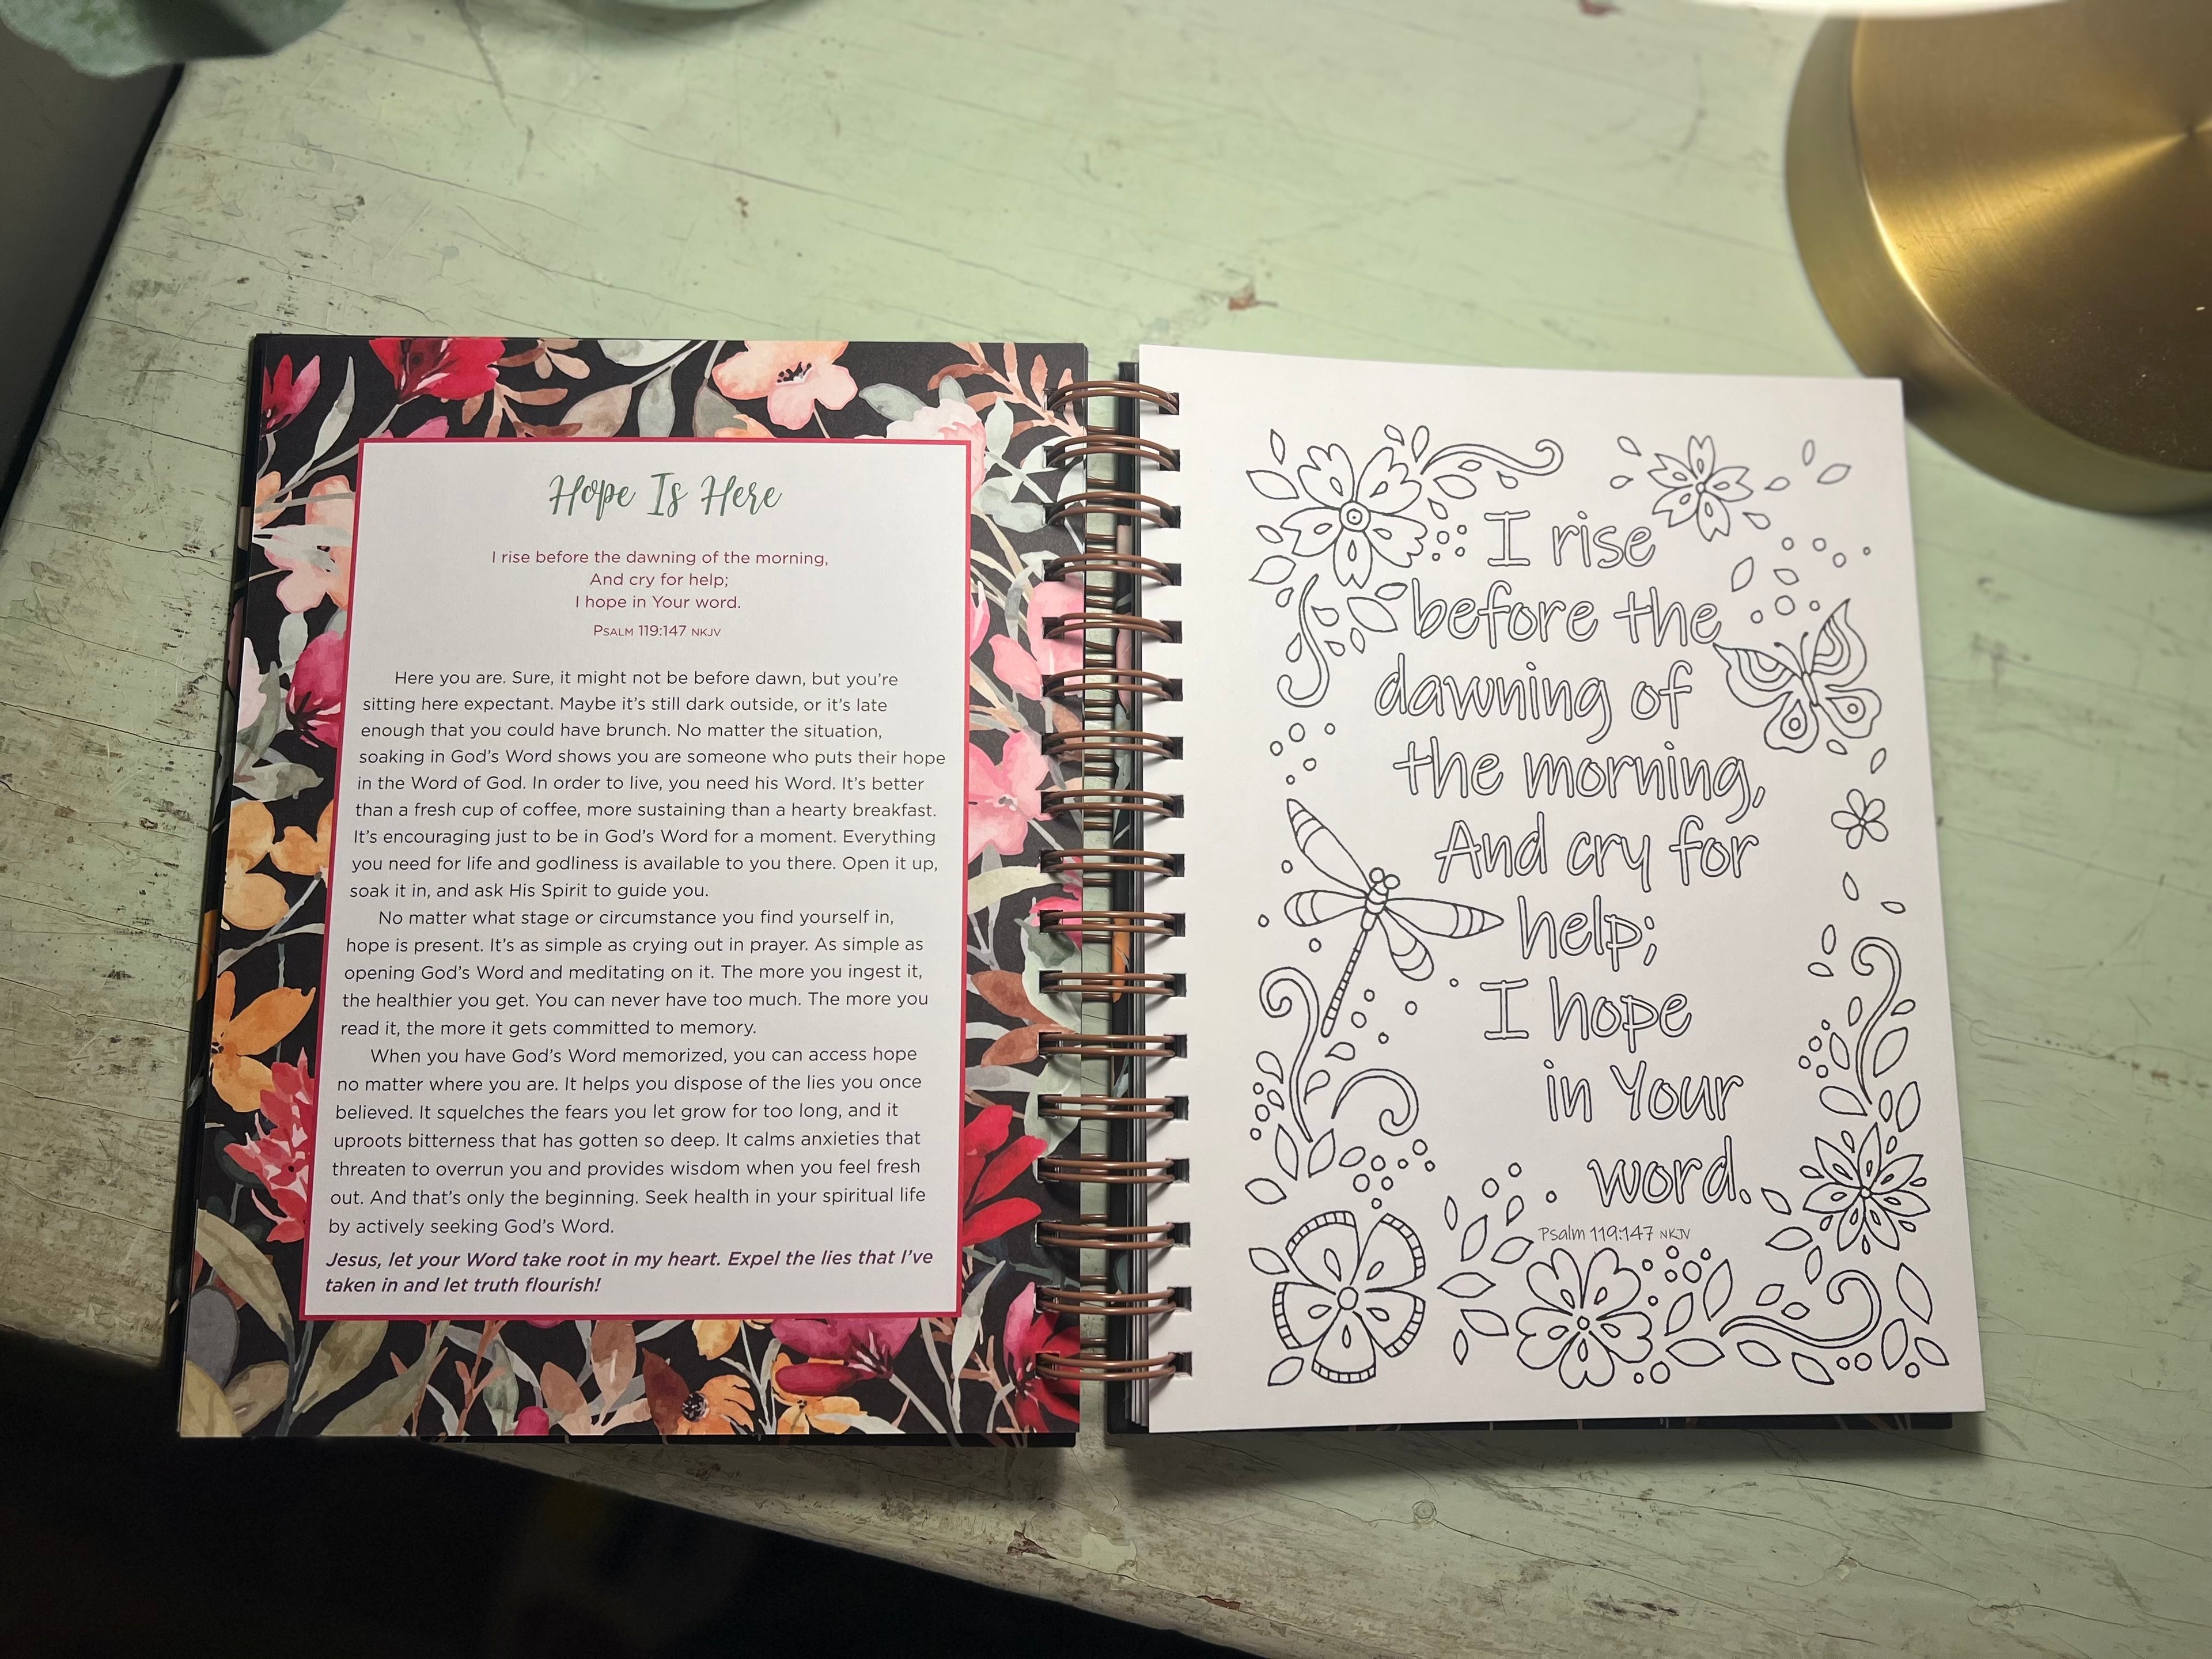 Hope Is Here
I rise before the dawning of the morning,
And cry for help;
I hope in Your word.
Psalm 119:147 NKJV
Here you are. Sure, it might not be before dawn, but you're
sitting here expectant. Maybe it's still dark outside, or it's late
enough that you could have brunch. No matter the situation,
soaking in God's Word shows you are someone who puts their hope
in the Word of God. In order to live, you need his Word. It's better
than a fresh cup of coffee, more sustaining than a hearty breakfast.
It's encouraging just to be in God's Word for a moment. Everything
you need for life and godliness is available to you there. Open it up,
soak it in, and ask His Spirit to guide you.
No matter what stage or circumstance you find yourself in,
hope is present. It's as simple as crying out in prayer. As simple as
opening God's Word and meditating on it. The more you ingest it,
the healthier you get. You can never have too much. The more you
read it, the more it gets committed to memory.
When you have God's Word memorized, you can access hope
no matter where you are. It helps you dispose of the lies you once
believed. It squelches the fears you let grow for too long, and it
uproots bitterness that has gotten so deep. It calms anxieties that
threaten to overrun you and provides wisdom when you feel fresh
out. And that's only the beginning. Seek health in your spiritual life
by actively seeking God's Word.
Jesus, let your Word take root in my heart. Expel the lies that I've
taken in and let truth flourish!
I rise
before the
dawning of
the morning,
And cry for
help;
I hope
in Your
word.
Psalm 119:147 NKJV